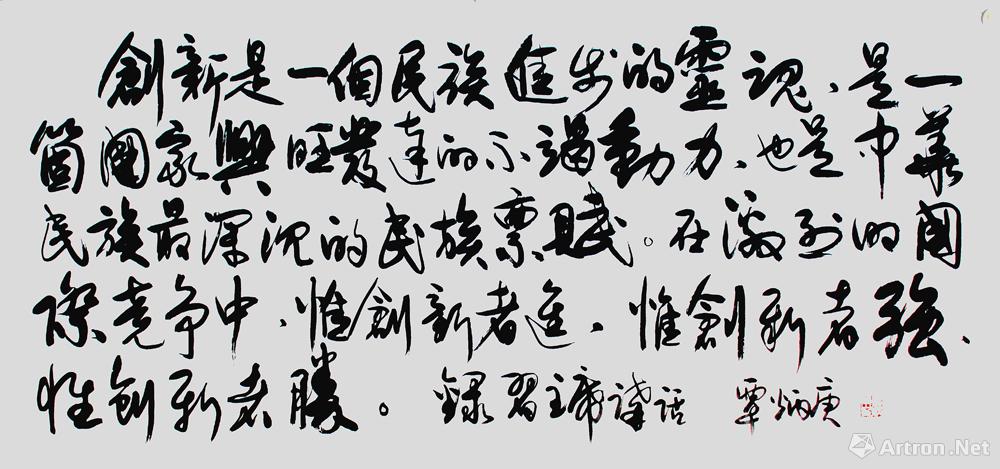 創新是一個民族進步的靈魂、是一
箇國家興旺發達的不竭動力、也是中華
民族最深沉的民族禀賦。在激烈的國
際競爭中、惟創新者進、惟創新者強、
惟創新者勝。錄習主席講話 覃炳庚
Artron.Net